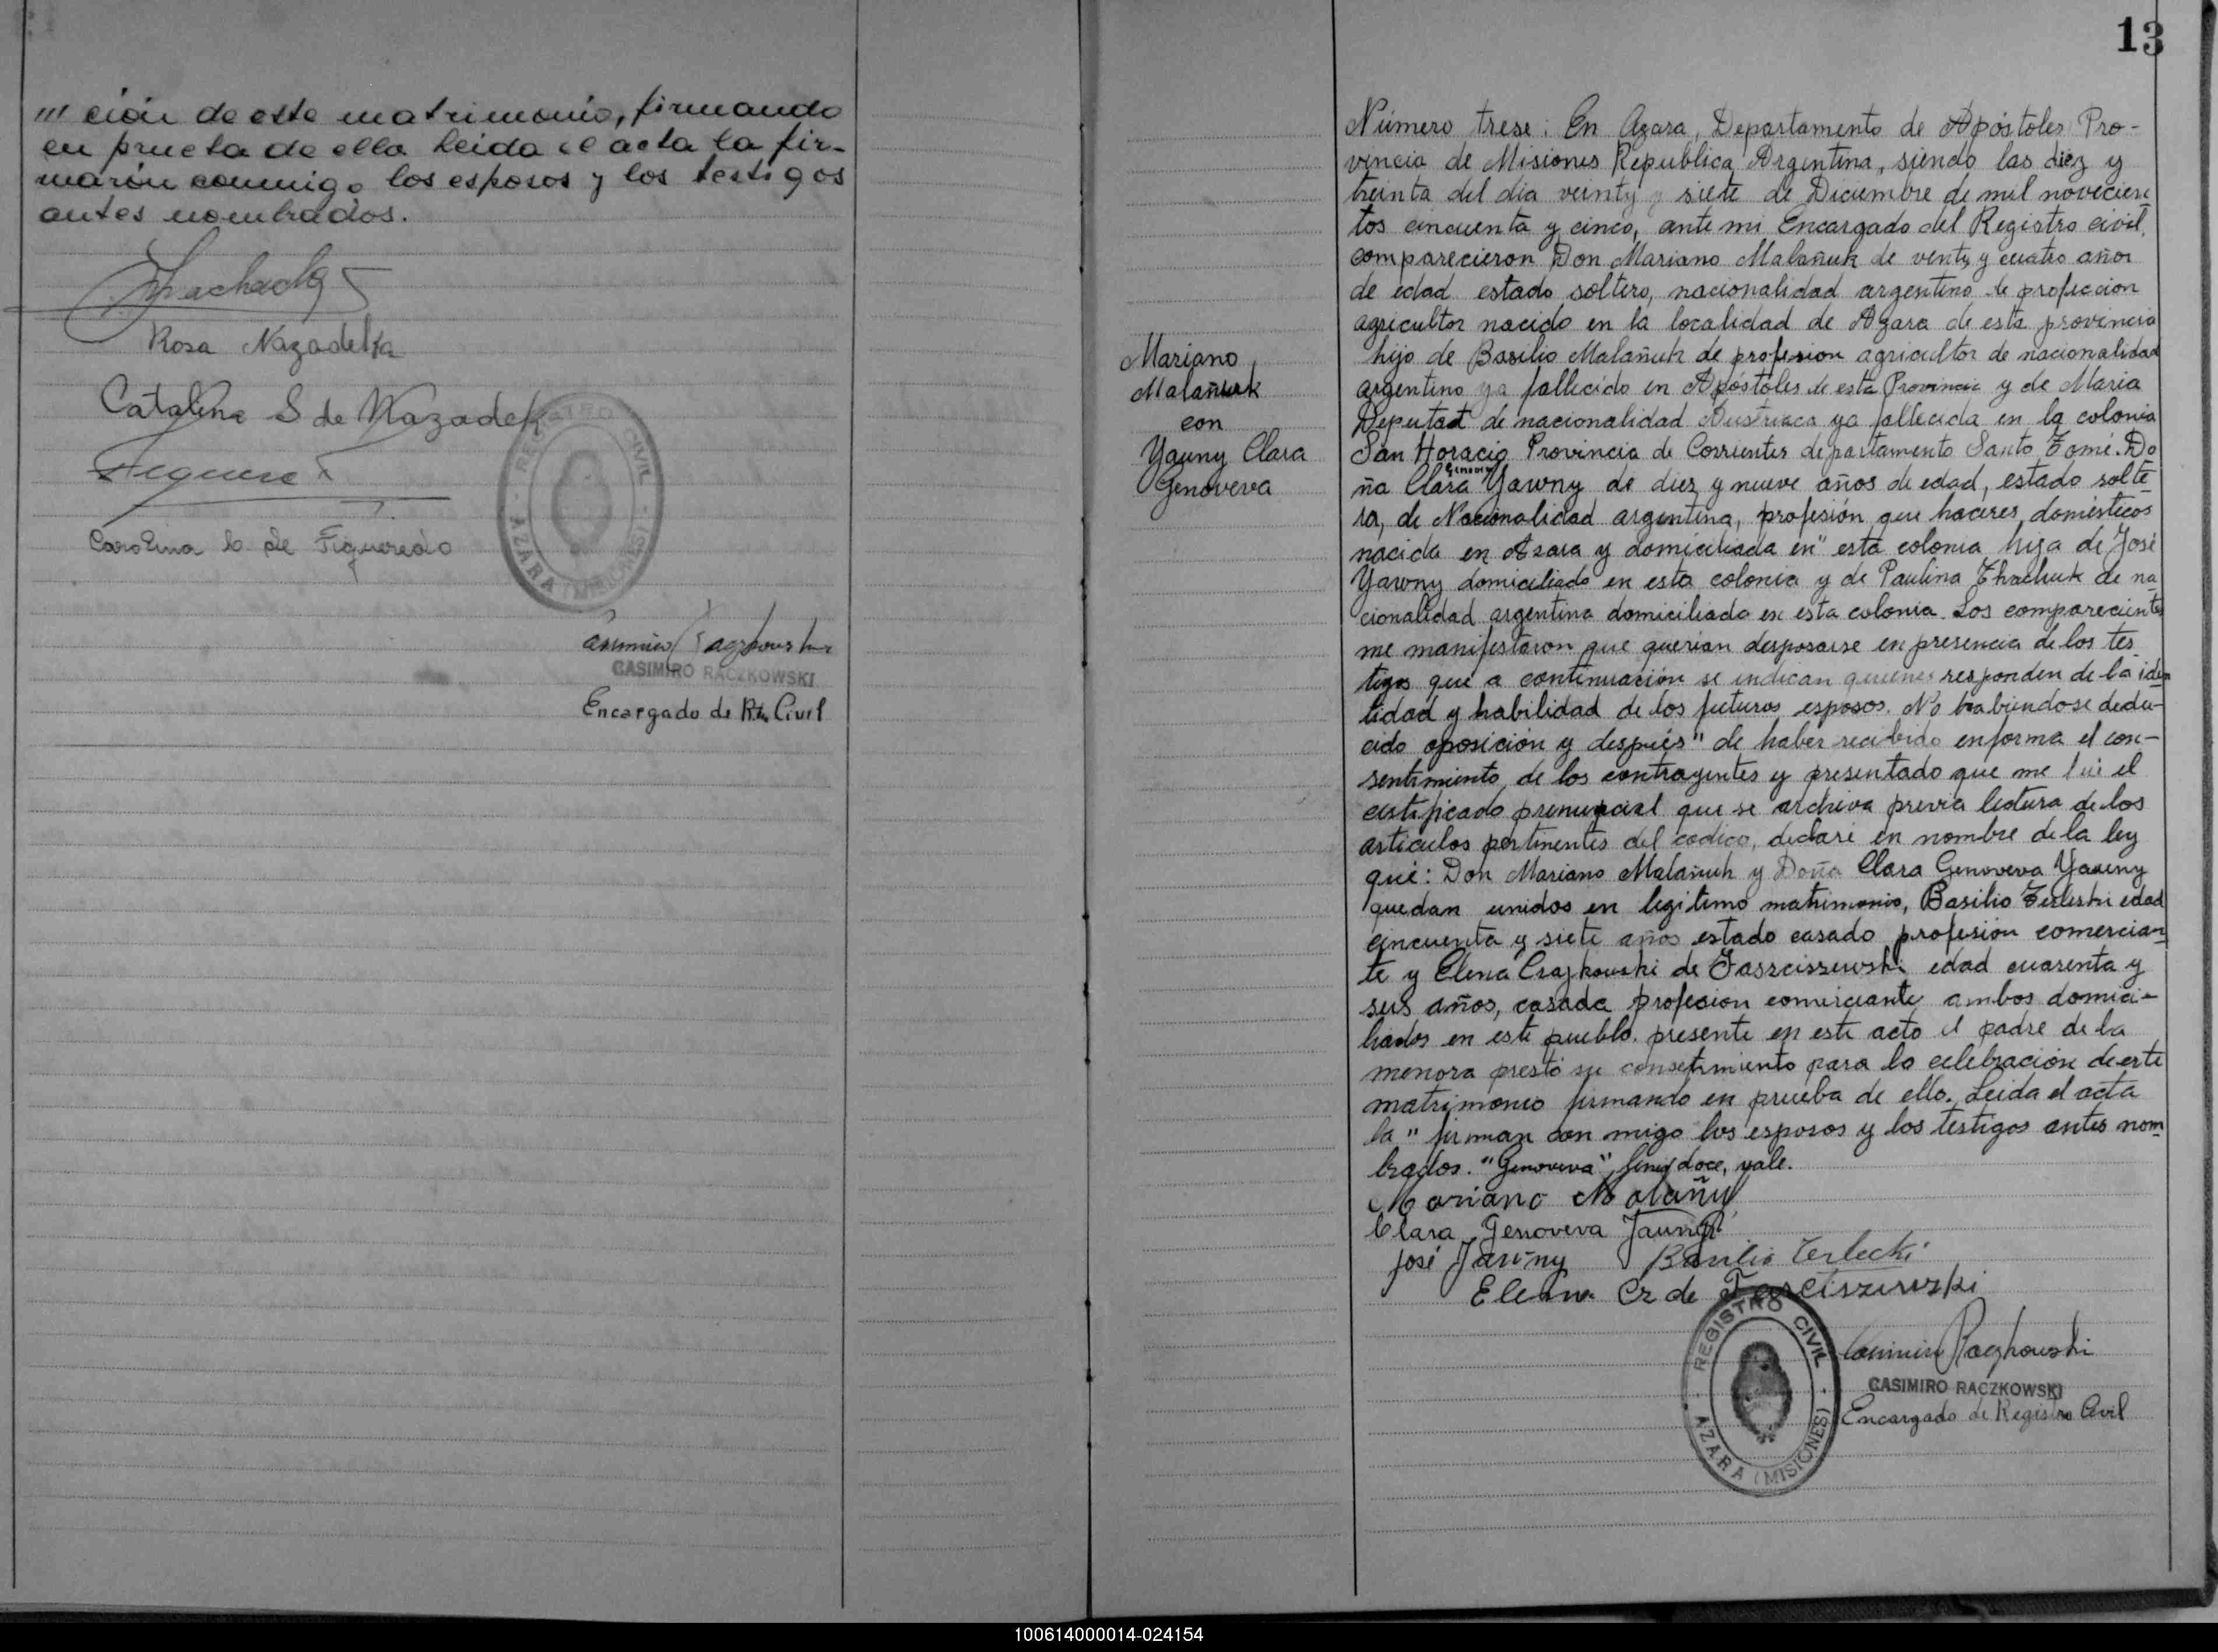 ción de este matrimonio, firmando
en prueba de ello leida el acta la fir-
marón conmigo los esposos y los testigos
antes nombrados.
Machado
Rosa Nazadelka
Catalina S de Nazadek
Carolina b de Figueredo
REGISTRO CIVIL
AZARA (MISIONES)
CASIMIRO RACZKOWSKI
Encargado de Rtro Civil
13
Mariano
Malañuk
con
Yauny Clara
Genoveva
Número trese: En Azara, Departamento de Apóstoles Pro-
vincia de Misiones Republica Argentina, siendo las diez y
treinta del dia veinty y siete de Diciembre de mil novecien
tos cincuenta y cinco, ante mi Encargado del Registro civil,
comparecieron Don Mariano Malañuk de venty y cuatro años
de edad estado soltero, nacionalidad argentino de profeccion
agricultor nacido en la localidad de Azara de esta provincia
hijo de Basilio Malañuk de profesion agricultor de nacionalidad
argentino ya fallecido en Apóstoles de esta Provincia y de Maria
Deputat de nacionalidad Austriaca ya fallecida en la colonia
San Horacio Provincia de Corrientes departamento Santo Tomé. Do
ña Clara Genoveva Yawny de diez y nueve años de edad, estado solte-
ra, de Nacionalidad argentina, profesión que haceres domésticos
nacida en Azara y domiciliada en" esta colonia hija de José
Yawny domiciliado en esta colonia y de Paulina Thachuk de na
cionalidad argentina domiciliada en esta colonia. Los comparecientes
me manifestaron que querian desposarse en presencia de los tes
tigos que a continuación se indican quienes responden de la iden
tidad y habilidad de los futuros esposos. No habiendose dedu-
cido oposición y después" de haber recibido en forma el con-
sentimiento de los contrayentes y presentado que me fué el
certificado prenupcial que se archiva previa lectura de los
articulos pertinentes del codico, declaré en nombre de la ley
que: Don Mariano Malañuk y Doña Clara Genoveva Yauny
quedan unidos en legitimo matrimonio, Basilio Terleski edad
cincuenta y siete años estado casado profesión comercian
te y Elena Crajkowski de Taszciszewski edad cuarenta y
seis años, casada profesion comerciante ambos domici-
liados en este pueblo. presente en este acto el padre de la
menora prestó su consetimiento para la celebracion de este
matrimonio firmando en prueba de ello. Leida el acta
la" firman con migo los esposos y los testigos antes nom
brados. "Genoveva", doce, vale.
Mariano Malañuk
Clara Genoveva Jauny
José Jauny Basilio Terlecki
Elena Cz de Tarciszewski
REGISTRO CIVIL
AZARA (MISIONES)
Casimiro Raczkowski
CASIMIRO RACZKOWSKI
Encargado de Registro Civil
100614000014-024154